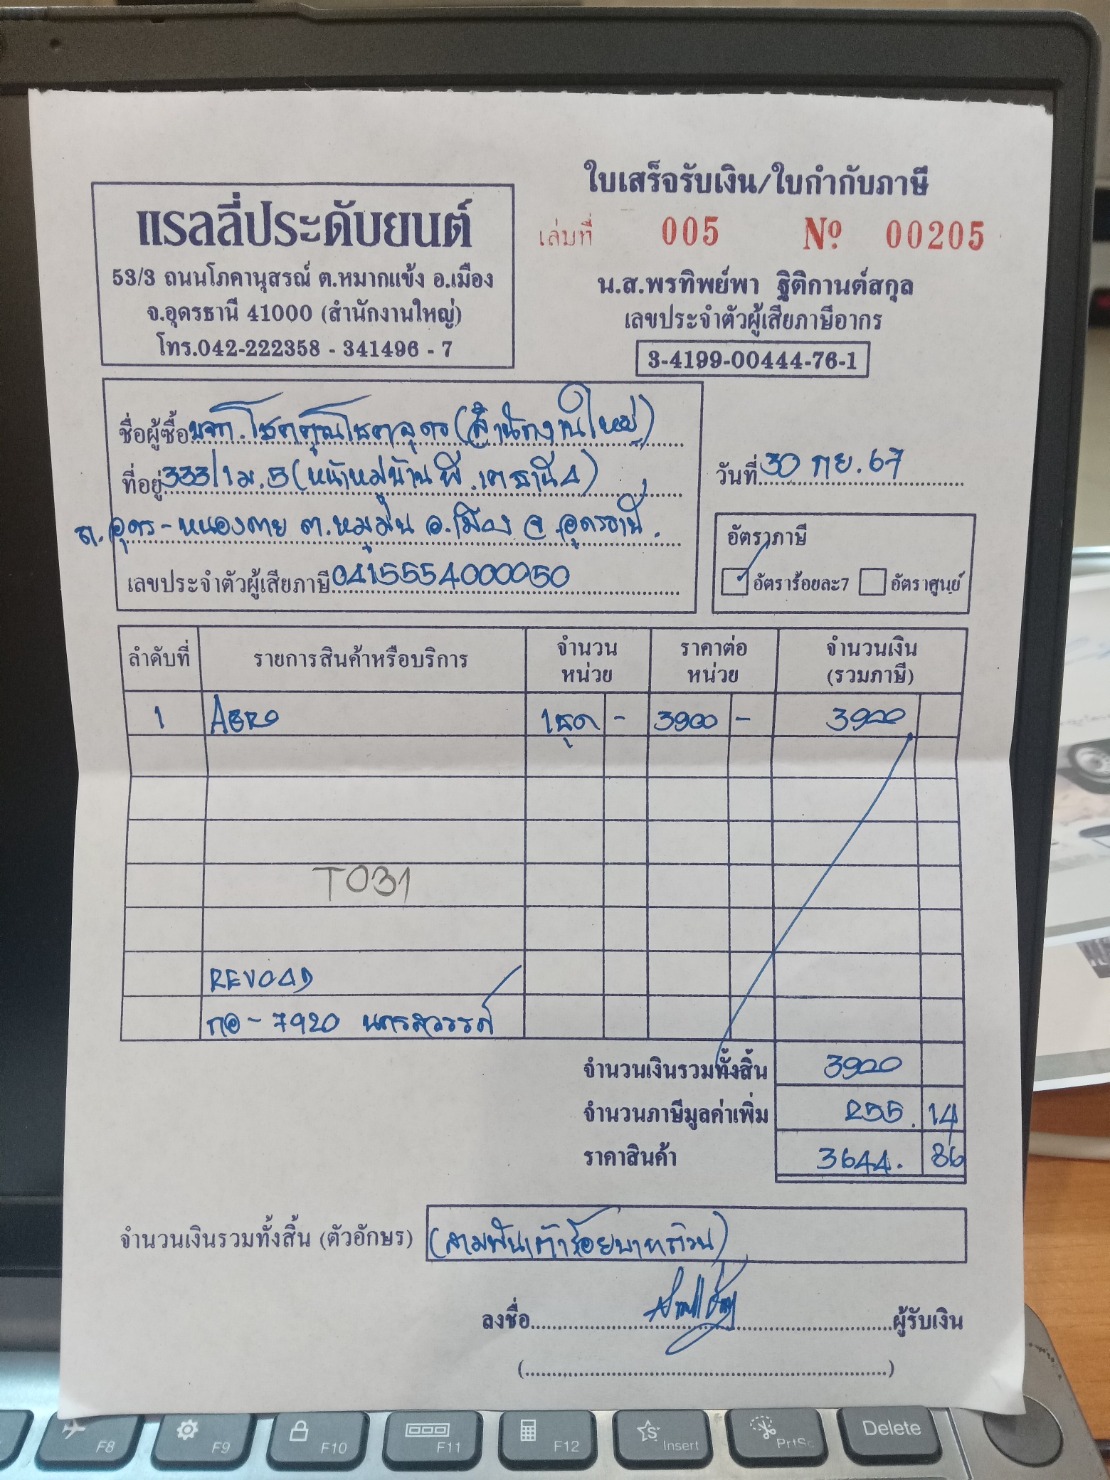 ใบเสร็จรับเงิน/ใบกำกับภาษี
แรลลี่ประดับยนต์
53/3 ถนนโภคานุสรณ์ ต.หมากแข้ง อ.เมือง
จ.อุดรธานี 41000 (สำนักงานใหญ่)
โทร.042-222358 - 341496 - 7
เล่มที่ 005 Nº 00205
น.ส.พรทิพย์พา ฐิติกานต์สกุล
เลขประจำตัวผู้เสียภาษีอากร
3-4199-00444-76-1
ชื่อผู้ซื้อ บจก.โชคคูณโชคอุดร (สำนักงานใหญ่)
ที่อยู่ 333/1 ม.5 (หน้าหมู่บ้านพี.เคธานี4)
ถ.อุดร-หนองคาย ต.หมูม่น อ.เมือง จ.อุดรธานี.
เลขประจำตัวผู้เสียภาษี 0415554000050
วันที่ 30 กย. 67
อัตราภาษี
อัตราร้อยละ7 อัตราศูนย์
ลำดับที่ รายการสินค้าหรือบริการ จำนวนหน่วย ราคาต่อหน่วย จำนวนเงิน (รวมภาษี)
1 AERO 1ชุด - 3900 - 3900
T031
REVO4D
กอ-7920 นครสวรรค์
จำนวนเงินรวมทั้งสิ้น 3900
จำนวนภาษีมูลค่าเพิ่ม 255.14
ราคาสินค้า 3644.86
จำนวนเงินรวมทั้งสิ้น (ตัวอักษร) (สามพันเก้าร้อยบาทถ้วน)
ลงชื่อ ผู้รับเงิน
F8 F9 F10 F11 F12 Insert PrtSc Delete